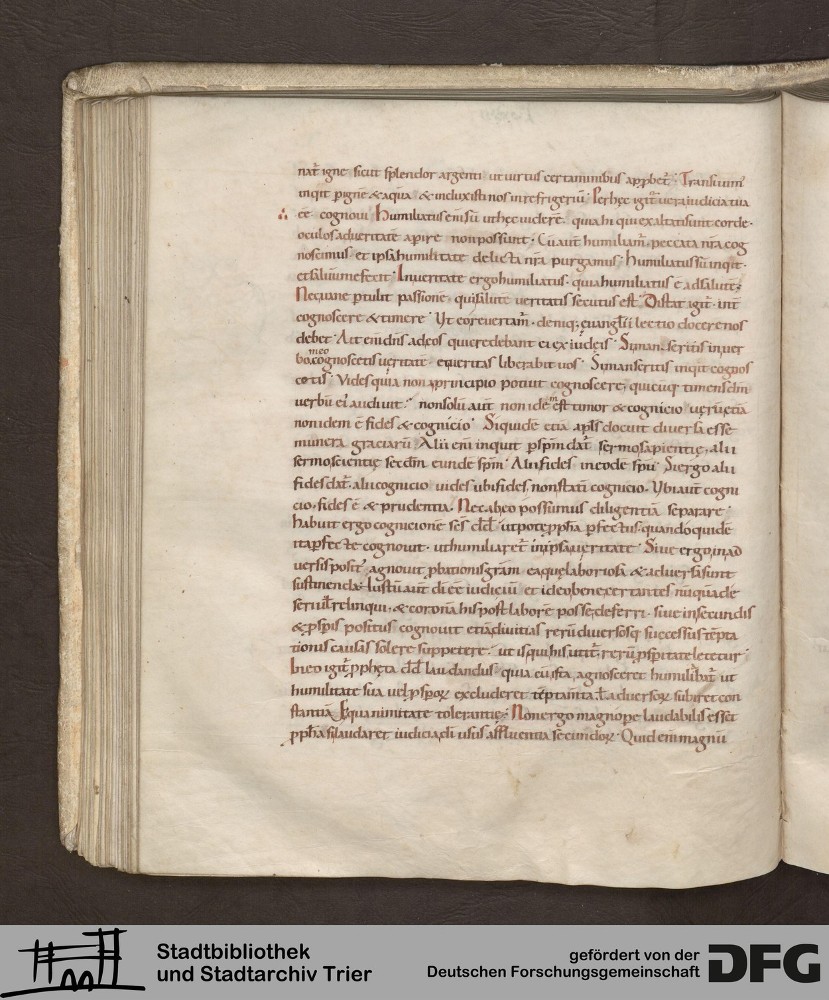 nat̄ igne sicut splendor argenti ut uirtus certaminibus ap̱pbet̄. Transiuim̄
inquit p̱ ignē & aquā & induxisti nos in refrigeriū. Per hęc igit̄ uera iudicia tua
cognoui. Humiliatus ē ut hęc uiderē. quia hi qui exaltati sunt corde.
oculos ad ueritatē apire non possunt. Cū aut̄ humiliam̄. peccata nr̄a cog
noscimus. et ipsa humilitate delicta nr̄a purgamus. Humiliatus sū inquit.
et saluum me fecit. In ueritate ergo humiliatus. quia humiliatus ē ad salutē.
Nec uane p̱tulit passionē. qui salutē ueritatis secutus est. Distat igit̄. int̄
cognoscere & timere. Ut eo reuertam̄. deniq; euangl̄ii lectio docere nos
debet. Ait eni dn̄s ad eos qui credebant ei ex iudeis. Si man seritis in uer
bo meo cognoscetis ueritatē. et ueritas liberabit uos. Si manseritis inquit cognos
cetis. Vides quia non a principio potuit cognoscere, quicūq; timens dm̄
uerbū ei audiuit. non solū aut̄ non idem est timor & cognicio uerū etiā
non idem ē fides & cognicio. Siquidē etiā apl̄s docuit diuersa esse
munera graciarū. Alii eni inquit p̱ sp̄m dat̄ sermo sapientię, alii
sermo scientię secdm̄ eundē sp̄m. Alii fides in eodē sp̄u. Si ergo alii
fides dat̄. alii cognicio. uides ubi fides, non statī cognicio. Vbi aut̄ cogni
cio, fides ē & prudentia. Nec ab eo possumus diligentiā separare.
habuit ergo cognicionē sc̄s dd̄. utpote p̱pha p̱fectus. quandoquidē
ita p̱fecte cognouit. ut humiliaret̄ in ipsa ueritate. Siue ergo in ad
uersis posit̄. agnouit p̱bationis gr̄am eaque laboriosa & aduersa sint
sustinenda. Iustū aut̄ di ēē iudiciū et ideo bene certantes nūquā de
seri ul̄ relinqui. & coronā his post laborē posse deferri. siue in secundis
& p̱spis positus cognouit etiā diuitias rerū diuersosq; successus tēpta
tionis causas solere suppetere. ut is qui his utit̄. rerū p̱speritate letetur.
In eo igit̄ p̱phęta dd̄ laudandus. quia cū ista agnosceret humiliabat̄ ut
humilitate sua uel p̱spoꝝ excluderet tēptamta. ul̄ aduersoꝝ subiret con
stantiā. Equanimitate tolerantię. Non ergo magnope laudabilis esset
p̱pha si laudaret iudicia di usus affluentia secundoꝝ. Quid eni magnū
Stadtbibliothek
und Stadtarchiv Trier
gefördert von der
Deutschen Forschungsgemeinschaft
DFG